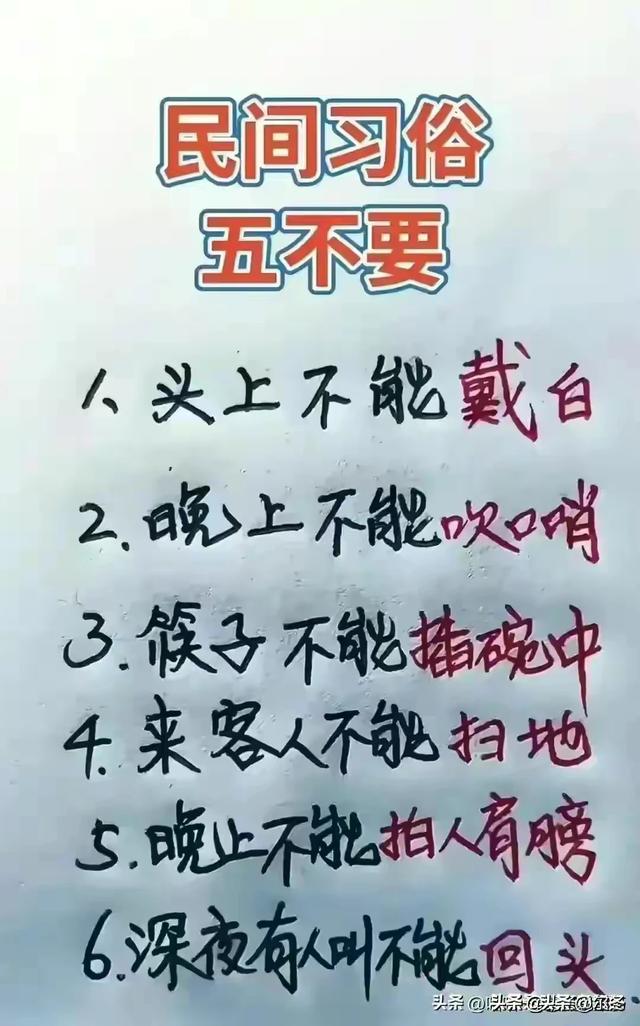 民间习俗
五不要
1、头上不能戴白
2.晚上不能吹口哨
3.筷子不能插碗中
4.来客人不能扫地
5.晚上不能拍人肩膀
6.深夜有人叫不能回头
头条 @头条 @头条 @